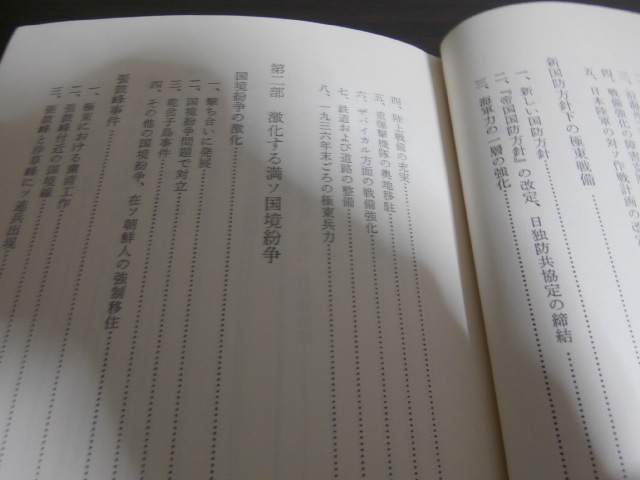 四、戦備強化の障
五、日本陸軍の対ソ作戦計画の改
新国防方針下の極東戦備
一、新しい国防方針
二、『帝国国防方針』の改定、日独防共協定の締結
三、海軍力の一層の強化
四、陸上戦備の充実
五、重爆撃機隊の奥地移駐
六、ザバイカル方面の戦備強化
七、鉄道および道路の整備
八、一九三六年末ごろの極東兵力
第二部 激化する満ソ国境紛争
国境紛争の激化
一、撃ち合いに発展
二、国境紛争問題で対立
三、乾岔子島事件
四、その他の国境紛争、在ソ朝鮮人の強制移住
張鼓峰事件
一、極東における粛清工作
二、張鼓峰付近の国境線
三、張鼓峰と沙草峰にソ連兵出現